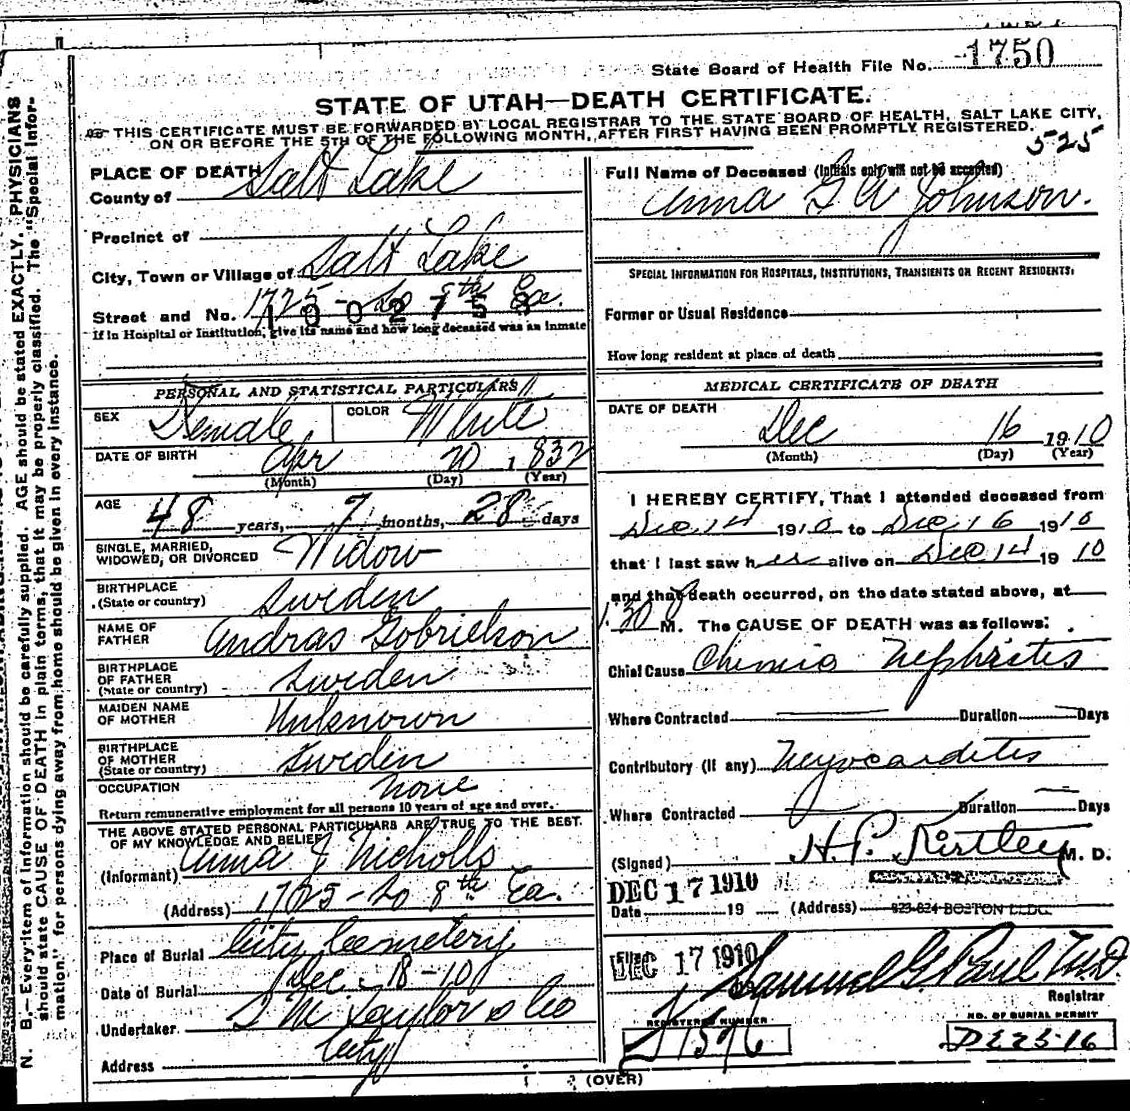 State Board of Health File No. 1750
STATE OF UTAH—DEATH CERTIFICATE.
THIS CERTIFICATE MUST BE FORWARDED BY LOCAL REGISTRAR TO THE STATE BOARD OF HEALTH, SALT LAKE CITY,
ON OR BEFORE THE 5TH OF THE FOLLOWING MONTH, AFTER FIRST HAVING BEEN PROMPTLY REGISTERED.
525
PLACE OF DEATH
County of Salt Lake
Precinct of
City, Town or Village of Salt Lake
Street and No. 1725 - So 8th Ea.
1002758
If in Hospital or Institution, give its name and how long deceased was an inmate
PERSONAL AND STATISTICAL PARTICULARS
SEX Female COLOR White
DATE OF BIRTH Apr 20 1832
(Month) (Day) (Year)
AGE 48 years, 7 months, 28 days
SINGLE, MARRIED,
WIDOWED, OR DIVORCED Widow
BIRTHPLACE
(State or country) Sweden
NAME OF
FATHER Andras Gobrielson
BIRTHPLACE
OF FATHER
(State or country) Sweden
MAIDEN NAME
OF MOTHER Unknown
BIRTHPLACE
OF MOTHER
(State or country) Sweden
OCCUPATION None
Return remunerative employment for all persons 10 years of age and over.
THE ABOVE STATED PERSONAL PARTICULARS ARE TRUE TO THE BEST
OF MY KNOWLEDGE AND BELIEF
(Informant) Anna J Nicholls
(Address) 1725 - So 8th Ea.
Place of Burial City Cemetery
Date of Burial Dec - 18 - 10
Undertaker S M Taylor & Co
Address City
Full Name of Deceased (Initials only will not be accepted)
Anna G A Johnson.
SPECIAL INFORMATION FOR HOSPITALS, INSTITUTIONS, TRANSIENTS OR RECENT RESIDENTS:
Former or Usual Residence
How long resident at place of death
MEDICAL CERTIFICATE OF DEATH
DATE OF DEATH
Dec 16 1910
(Month) (Day) (Year)
I HEREBY CERTIFY, That I attended deceased from
Dec 14 1910 to Dec 16 1910
that I last saw her alive on Dec 14 1910
and that death occurred, on the date stated above, at
1.30 P M. The CAUSE OF DEATH was as follows:
Chief Cause Chronic Nephrites
Where Contracted Duration Days
Contributory (if any) Myocardites
Where Contracted Duration Days
(Signed) H. P. Kirtley M. D.
DEC 17 1910
Date 19 (Address) 823-824 BOSTON BLDG.
Filed
DEC 17 1910 Samuel G. Paul M.D.
Registrar
REGISTERED NUMBER
J 1576
NO. OF BURIAL PERMIT
D2225-16
(OVER)
N. B.—Every item of information should be carefully supplied. AGE should be stated EXACTLY. PHYSICIANS
should state CAUSE OF DEATH in plain terms, that it may be properly classified. The "Special Infor-
mation" for persons dying away from home should be given in every instance.